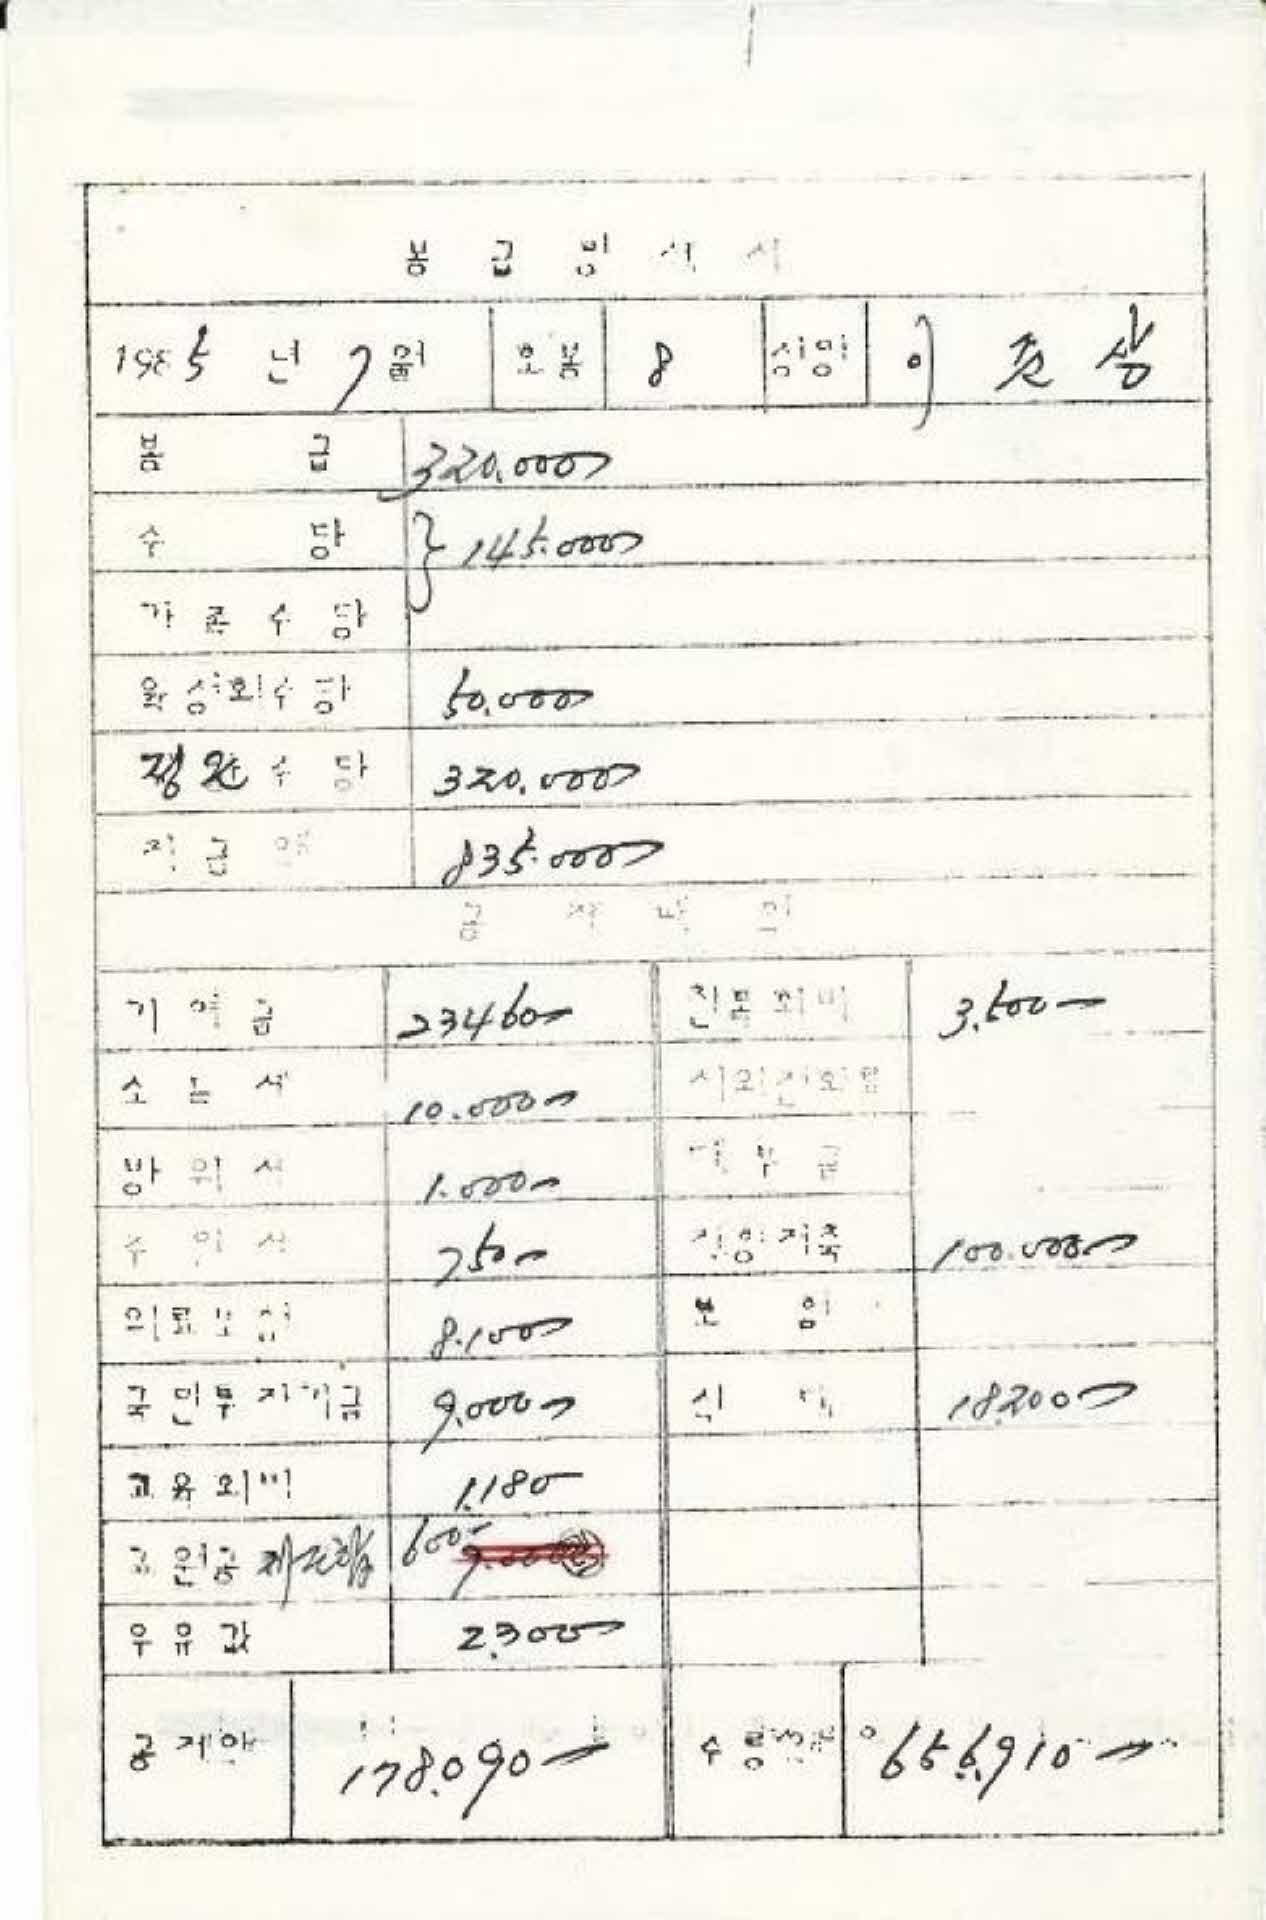 봉급명세서
1985년 7월 호봉 8 성명 이 준 상
봉급 320.000
수당 145.000
가족수당
육성회수당 50.000
정근수당 320.000
지급액 835.000
공제내역
기여금 23460 친목회비 3.500
소득세 10.000 시외전화료
방위세 1.000 대부금
주민세 750 재형저축 100.000
의료보험 8.100 보험
국민투자기금 9.000 식대 18.200
교육회비 1.180
교원공제 600 9.000
우유값 2.300
공제액 178.090 수령액 656.910